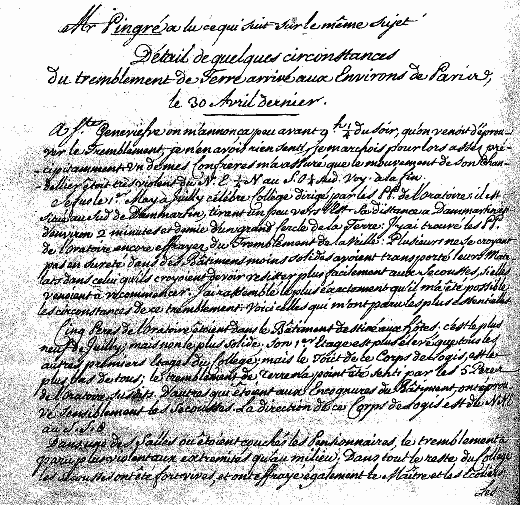 Mr Pingré a lu ce qui suit sur le même sujet
Détail de quelques circonstances
du tremblement de Terre arrivé aux Environs de Paris,
le 30 Avril dernier.
A Ste Genevieve on m'annonça peu avant 9h ¼ du soir, qu'on venoit d'éprou-
ver le Tremblement, je n'en avois rien senti, je marchois pour lors assés pré-
cipitamment un de mes Confreres m'a assuré que le mouvement de son Chan-
delier étoit très violent du N. E ¼ N au S. O ¼ Sud. Voy. à la fin.
Je fus le 1er May à Juilly célèbre Collège dirigé par les PP. de l'Oratoire: il est
situé au Sud de Dammartin, tirant un peu vers l'Est. Sa distance à Dammartin est
d'environ 2 minutes et demie d'un grand cercle de la Terre. J'y ai trouvé les PP.
de l'oratoire encore effrayés du Tremblement de la veille. Plusieurs ne se croyant
pas en sureté dans des Bâtimens moins solides avoient transporté leurs Mate-
lats dans celui qu'ils croyoient devoir resister plus facilement aux secousses, si elles
venoient à recommencer. J'ai rassemblé le plus exactement qu'il m'a été possible
les circonstances de ce tremblement. Voici celles qui m'ont paru les plus essentielles
Cinq Peres de l'oratoire étoient dans le Bâtiment destiné aux hôtes, c'est le plus
neuf de Juilly, mais non le plus solide. Son 1er Etage est plus élevé que tous les
autres premiers Etages du College; mais le Toit de ce Corps de Logis, est le
plus bas de tous; le tremblement de Terre n'a point été senti par les 5 Peres
de l'oratoire susdits. D'autres qui étoient aux Encognures du Bâtiment ont éprou-
vé sensiblement les secousses. La direction de ce Corps de logis est du N. N. O
au S. S. E
Dans une des Salles où étoient couchés les Pensionnaires, le tremblement a
paru plus violent aux extremités qu'au milieu. Dans tout le reste du College
les secousses ont été fort vives, et ont effrayé également le Maître et les Ecoliers